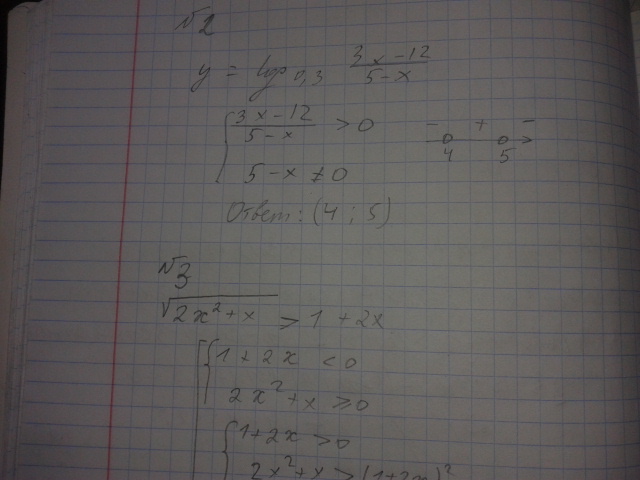 №2
y = log₀,₃ (3x-12)/(5-x)
{ (3x-12)/(5-x) > 0
5-x ≠ 0
- + -
4 5
Ответ: (4; 5)
№3
√(2x²+x) > 1+2x
[ { 1+2x < 0
2x²+x ≥ 0
{ 1+2x > 0
2x²+x > (1+2x)²